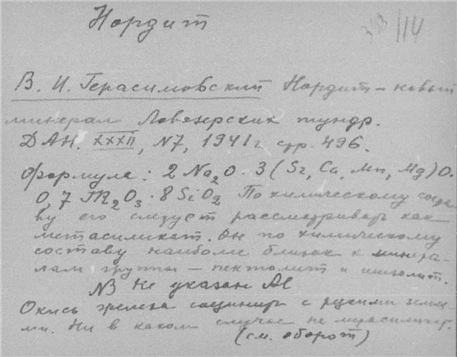 Нордит
/14
В. И. Герасимовский Нордит – новый
минерал Ловозерских тундр.
ДАН. XXXII, N7, 1941 г. стр. 496.
Формула: 2 Na₂O · 3 (Sr, Ca, Mn, Mg)O.
0,7 TR₂O₃ · 8 SiO₂ По химическому соста
ву его следует рассматривать как
метасиликат. Он по химическому
составу наиболе близок к минера-
лам группы – пектолит и
NB Не указан Al
Окись с редкими земля-
ми. Ни в каком случае не метасиликат.
(см. оборот)